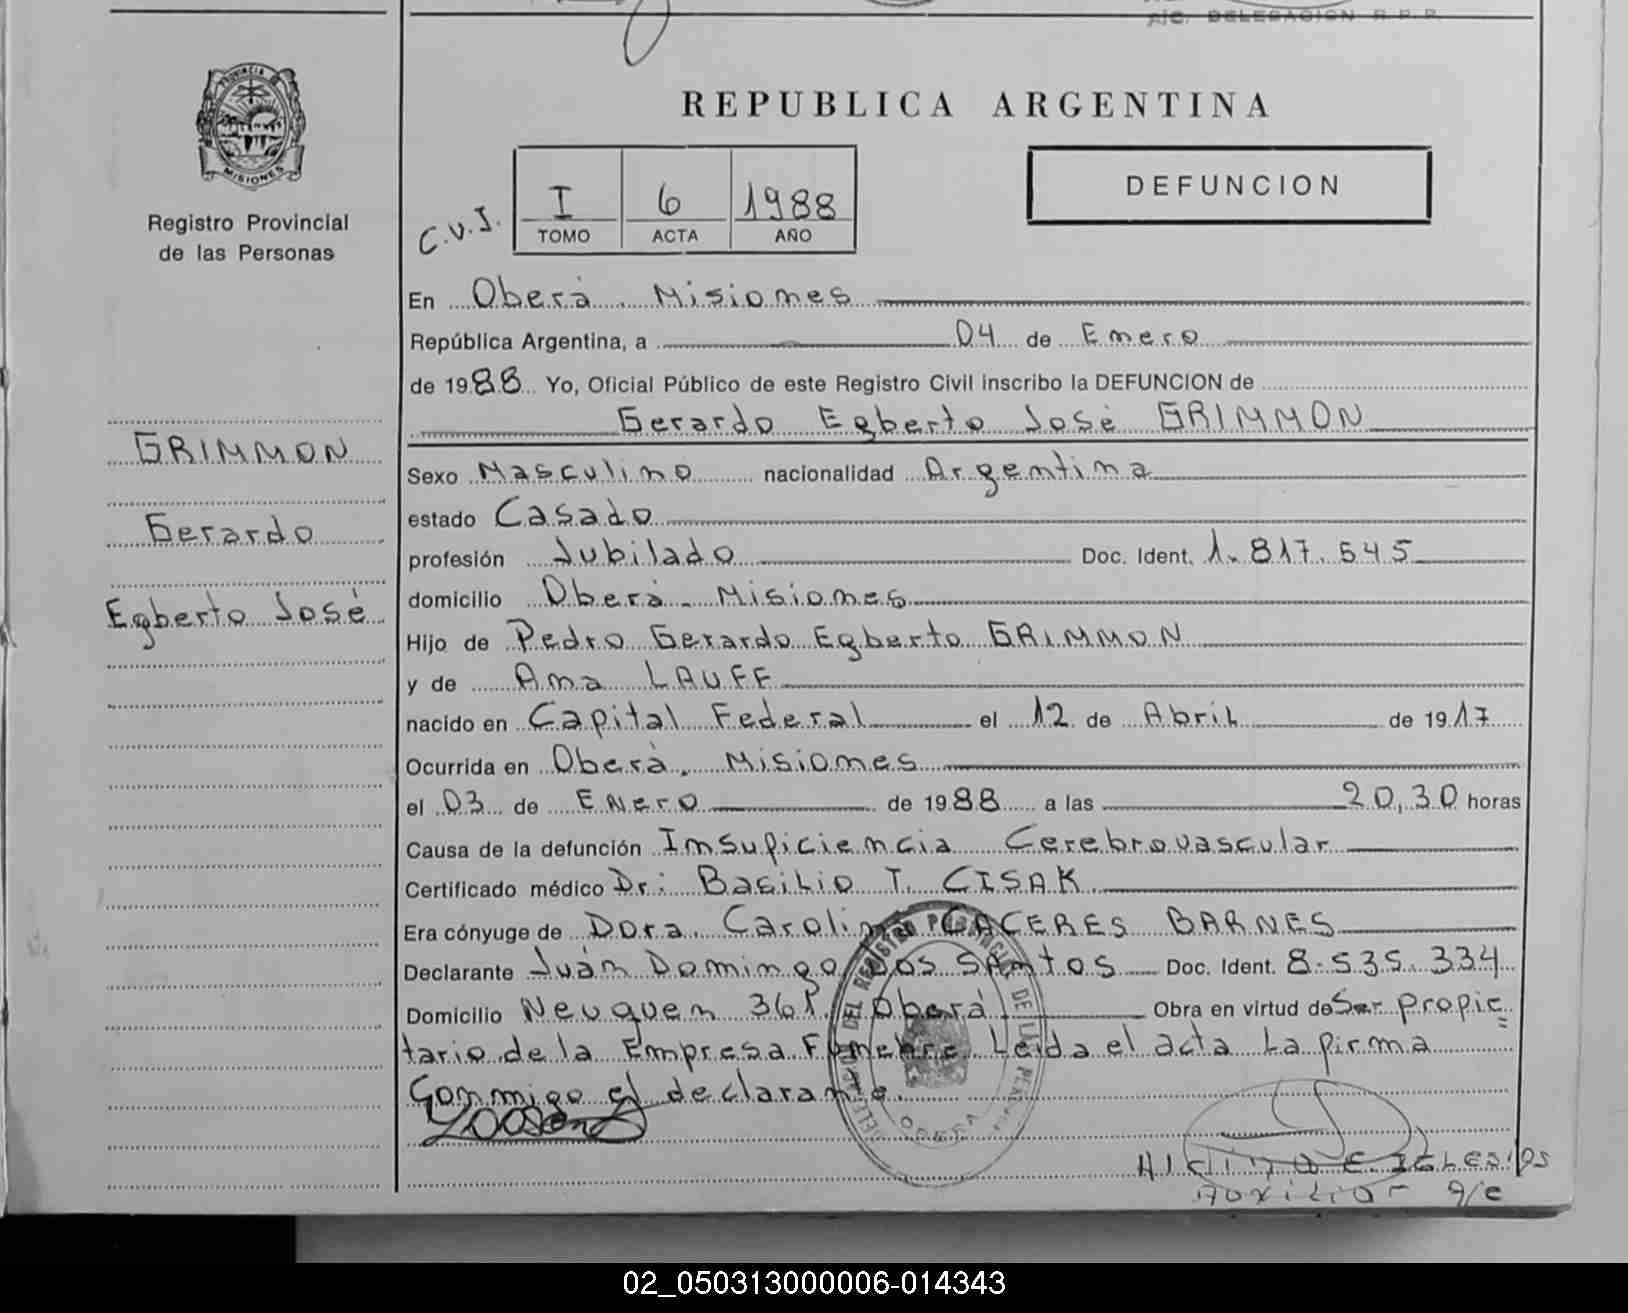 A/C. DELEGACION R.P.P.
PROVINCIA DE
MISIONES
Registro Provincial
de las Personas
GRIMMON
Gerardo
Egberto José
REPUBLICA ARGENTINA
C.V.I.
I 6 1988
TOMO ACTA AÑO
DEFUNCION
En Oberá. Misiones
República Argentina, a 04 de Enero
de 1988 Yo, Oficial Público de este Registro Civil inscribo la DEFUNCION de
Gerardo Egberto José GRIMMON
Sexo Masculino nacionalidad Argentina
estado Casado
profesión Jubilado Doc. Ident. 1.817.545
domicilio Oberá - Misiones
Hijo de Pedro Gerardo Egberto GRIMMON
y de Ana LAUFF
nacido en Capital Federal el 12 de Abril de 1917
Ocurrida en Oberá, Misiones
el 03 de Enero de 1988 a las 20,30 horas
Causa de la defunción Insuficiencia Cerebrovascular
Certificado médico Dr: Basilio T. CISAK
Era cónyuge de Dora Carolina CACERES BARNES
Declarante Juán Domingo DOS SANTOS Doc. Ident. 8.535.334
Domicilio Neuquen 361. Oberá Obra en virtud de Ser propie=
tario de la Empresa Funebre Leida el acta la firma
Conmigo el declarante.
DEL REGISTRO PROVINCIAL DE LAS
OBERA
IGLESIAS
Auxiliar
02_050313000006-014343